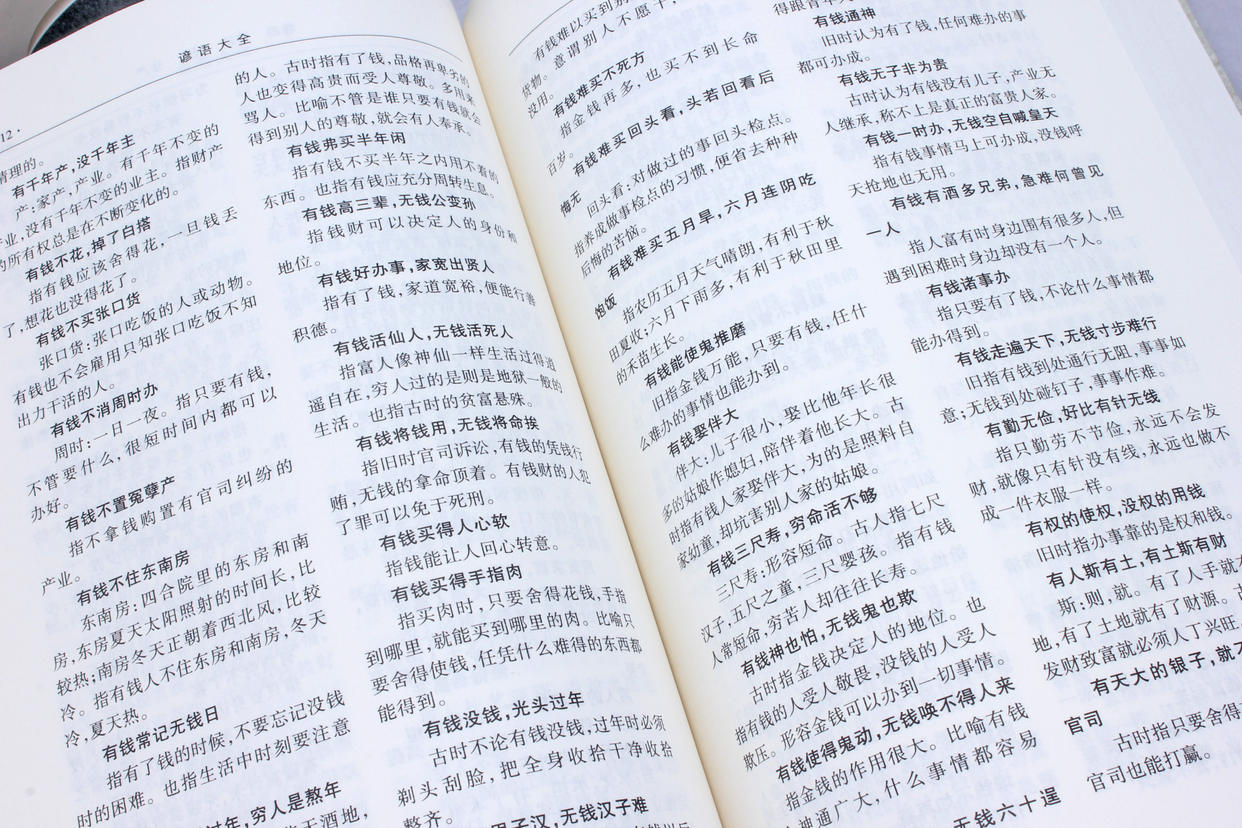 谚语大全
12·
情理的。
有千年产，没千年主
产：家产，产业。有千年不变的
产业，没有千年不变的业主。指财产
的所有权总是在不断变化的。
有钱不花，掉了白搭
指有钱应该舍得花，一旦钱丢
了，想花也没得花了。
有钱不买张口货
张口货：张口吃饭的人或动物。
有钱也不会雇用只知张口吃饭不知
出力干活的人。
有钱不消周时办
周时：一日一夜。指只要有钱，
不管要什么，很短时间内都可以
办好。
有钱不置冤孽产
指不拿钱购置有官司纠纷的
产业。
有钱不住东南房
东南房：四合院里的东房和南
房，东房夏天太阳照射的时间长，比
较热；南房冬天正朝着西北风，比较
冷。指有钱人不住东房和南房，冬天
冷，夏天热。
有钱常记无钱日
指有了钱的时候，不要忘记没钱
时的困难。也指生活中时刻要注意
过年，穷人是熬年
天酒地，
的人。古时指有了钱，品格再卑劣的
人也变得高贵而受人尊敬。多用来
骂人。比喻不管是谁只要有钱就会
得到别人的尊敬，就会有人奉承。
有钱弗买半年闲
指有钱不买半年之内用不着的
东西。也指有钱应充分周转生息。
有钱高三辈，无钱公变孙
指钱财可以决定人的身份和
地位。
有钱好办事，家宽出贤人
指有了钱，家道宽裕，便能行善
积德。
有钱活仙人，无钱活死人
指富人像神仙一样生活过得逍
遥自在，穷人过的是则是地狱一般的
生活。也指古时的贫富悬殊。
有钱将钱用，无钱将命挨
指旧时官司诉讼，有钱的凭钱行
贿，无钱的拿命顶着。有钱财的人犯
了罪可以免于死刑。
有钱买得人心软
指钱能让人回心转意。
有钱买得手指肉
指买肉时，只要舍得花钱，手指
到哪里，就能买到哪里的肉。比喻只
要舍得使钱，任凭什么难得的东西都
能得到。
有钱没钱，光头过年
古时不论有钱没钱，过年时必须
剃头刮脸，把全身收拾干净收拾
整齐。
男子汉，无钱汉子难
有钱难以买到别
货物。意谓别人不愿干，
没用。
有钱难买不死方
指金钱再多，也买不到长命
百岁。
有钱难买回头看，头若回看后
悔无
回头看：对做过的事回头检点。
指养成做事检点的习惯，便省去种种
后悔的苦恼。
有钱难买五月旱，六月连阴吃
饱饭
指农历五月天气晴朗，有利于秋
田夏收；六月下雨多，有利于秋田里
的禾苗生长。
有钱能使鬼推磨
旧指金钱万能，只要有钱，任什
么难办的事情也能办到。
有钱娶伴大
伴大：儿子很小，娶比他年长很
多的姑娘作媳妇，陪伴着他长大。古
时指有钱人家娶伴大，为的是照料自
家幼童，却坑害别人家的姑娘。
有钱三尺寿，穷命活不够
三尺寿：形容短命。古人指七尺
汉子，五尺之童，三尺婴孩。指有钱
人常短命，穷苦人却往往长寿。
有钱神也怕，无钱鬼也欺
古时指金钱决定人的地位。也
指有钱的人受人敬畏，没钱的人受人
欺压。形容金钱可以办到一切事情。
有钱使得鬼动，无钱唤不得人来
指金钱的作用很大。比喻有钱
人神通广大，什么事情都容易
无钱六十逞
得跟青年
有钱通神
旧时认为有了钱，任何难办的事
都可办成。
有钱无子非为贵
古时认为有钱没有儿子，产业无
人继承，称不上是真正的富贵人家。
有钱一时办，无钱空自喊皇天
指有钱事情马上可办成，没钱呼
天抢地也无用。
有钱有酒多兄弟，急难何曾见
一人
指人富有时身边围有很多人，但
遇到困难时身边却没有一个人。
有钱诸事办
指只要有了钱，不论什么事情都
能办得到。
有钱走遍天下，无钱寸步难行
旧指有钱到处通行无阻，事事如
意；无钱到处碰钉子，事事作难。
有勤无俭，好比有针无线
指只勤劳不节俭，永远不会发
财，就像只有针没有线，永远也做不
成一件衣服一样。
有权的使权，没权的用钱
旧时指办事靠的是权和钱。
有人斯有土，有土斯有财
斯：则，就。有了人手就不
地，有了土地就有了财源。古
发财致富就必须人丁兴旺。
有天大的银子，就
官司
古时指只要舍得
官司也能打赢。